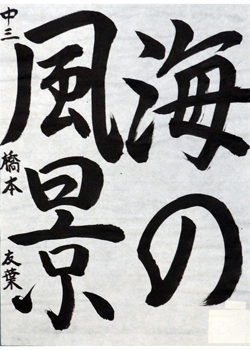 海の
風景
中三 橋本 友葉